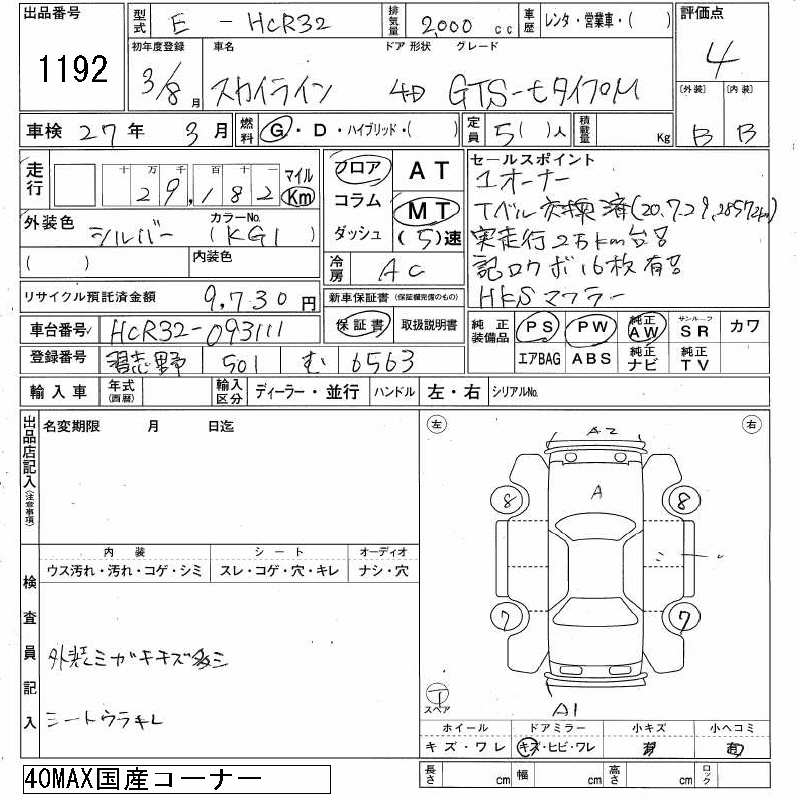 出品番号 型式 E - HCR32 排気量 2,000 cc 車歴 レンタ・営業車・( ) 評価点
1192 初年度登録 車名 ドア 形状 グレード 4
3/8月 スカイライン 4D GTS-tタイプM [外装] [内装]
車検 27年 3月 燃料 G・D・ハイブリッド・( ) 定員 5( )人 積載量 Kg B B
走行 十 万 千 百 十 一 マイル フロア AT セールスポイント
29,182 Km コラム MT 1オーナー
外装色 シルバー カラーNo. (KG1) ダッシュ (5)速 Tベル交換済(20.7.29,28572km)
( ) 内装色 冷房 AC 実走行2万km台!!
リサイクル預託済金額 9,730円 新車保証書 (保証欄完備のもの) 記ロクボ16枚有!!
車台番号 HCR32-093111 保証書 取扱説明書 HKSマフラー
純正装備品 PS PW 純正AW サンルーフSR カワ
登録番号 習志野 501 む 6563 エアBAG ABS 純正ナビ 純正TV
輸入車 年式(西暦) 輸入区分 ディーラー・並行 ハンドル 左・右 シリアルNo.
出品店記入(注意事項) 名変期限 月 日迄 左 右
A2
A
8 8
内装 シート オーディオ
ウス汚れ・汚れ・コゲ・シミ スレ・コゲ・穴・キレ ナシ・穴
検査員記入
7 7
外装ミガキキズ多シ
シートウラキレ
スペア A1
ホイール ドアミラー 小キズ 小ヘコミ
キズ・ワレ キズ・ヒビ・ワレ
40MAX国産コーナー 長さ cm 幅 cm 高さ cm ロック